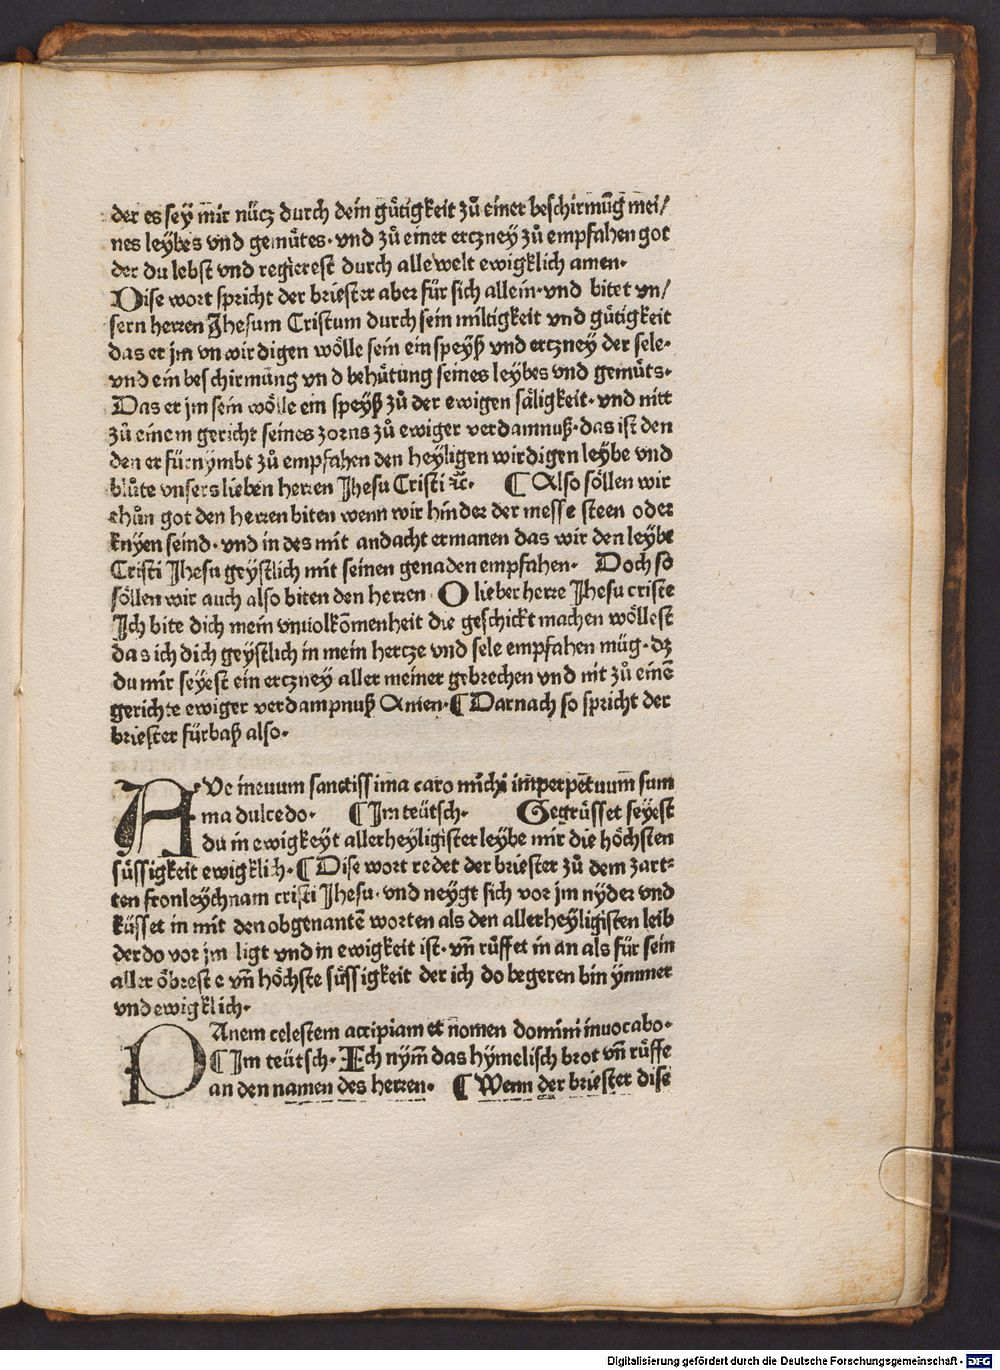 der es sey mir nücz durch dein gütigkeit zů einer beschirmũg mei/
nes leybes vnd gemütes · vnd zů einer erczney zů empfahen got
der du lebst vnd regierest durch alle welt ewigklich amen ·
Dise wort spricht der briester aber für sich allein · vnd bitet vn/
sern herren Jhesum Cristum durch sein miltigkeit vnd gütigkeit
das er jm vnwirdigen wölle sein ein speyß vnd erczney der sele ·
vnd ein beschirmung vnd behütung seines leybes vnd gemüts ·
Das er jm sein wölle ein speyß zů der ewigen säligkeit · vnd nitt
zů einem gericht seines zorns zů ewiger verdamnuß · das ist den
den er fürnymbt zů empfahen den heyligen wirdigen leybe vnd
blůte vnsers lieben herren Jhesu Cristi ꝛc̃ · ¶ Also söllen wir
thůn got den herren biten wenn wir hinder der messe steen oder
knyen seind · vnd in des mit andacht ermanen das wir den leybe
Cristi Jhesu geystlich mit seinen genaden empfahen · Doch so
söllen wir auch also biten den herren · O lieber herre Jhesu criste
Jch bite dich mein vnuolkõmenheit die geschickt machen wöllest
das ich dich geystlich in mein hercze vnd sele empfahen müg · dz
du mir seyest ein erczney aller meiner gebrechen vnd nit zů einẽ
gerichte ewiger verdampnuß Amen · ¶ Darnach so spricht der
briester fürbaß also ·
AVe ineuum sanctissima caro michi imperpetuum sum
ma dulcedo · ¶ Jm teütsch · Gegrüsset seyest
du in ewigkeyt allerheyligister leybe mir die höchsten
süssigkeit ewigklich · ¶ Dise wort redet der briester zů dem zart⸗
ten fronleychnam cristi Jhesu · vnd neygt sich vor jm nyder vnd
küsset in mit den obgenantẽ worten als den allerheyligisten leib
der do vor jm ligt vnd in ewigkeit ist · vñ rüffet in an als für sein
aller öbreste vñ höchste süssigkeit der ich do begeren bin ymmer
vnd ewigklich ·
PAnem celestem accipiam et nomen domini inuocabo ·
¶ Jm teütsch · Ich nym̃ das hymelisch brot vñ rüffe
an den namen des herren · ¶ Wenn der briester dise
Digitalisierung gefördert durch die Deutsche Forschungsgemeinschaft - DFG